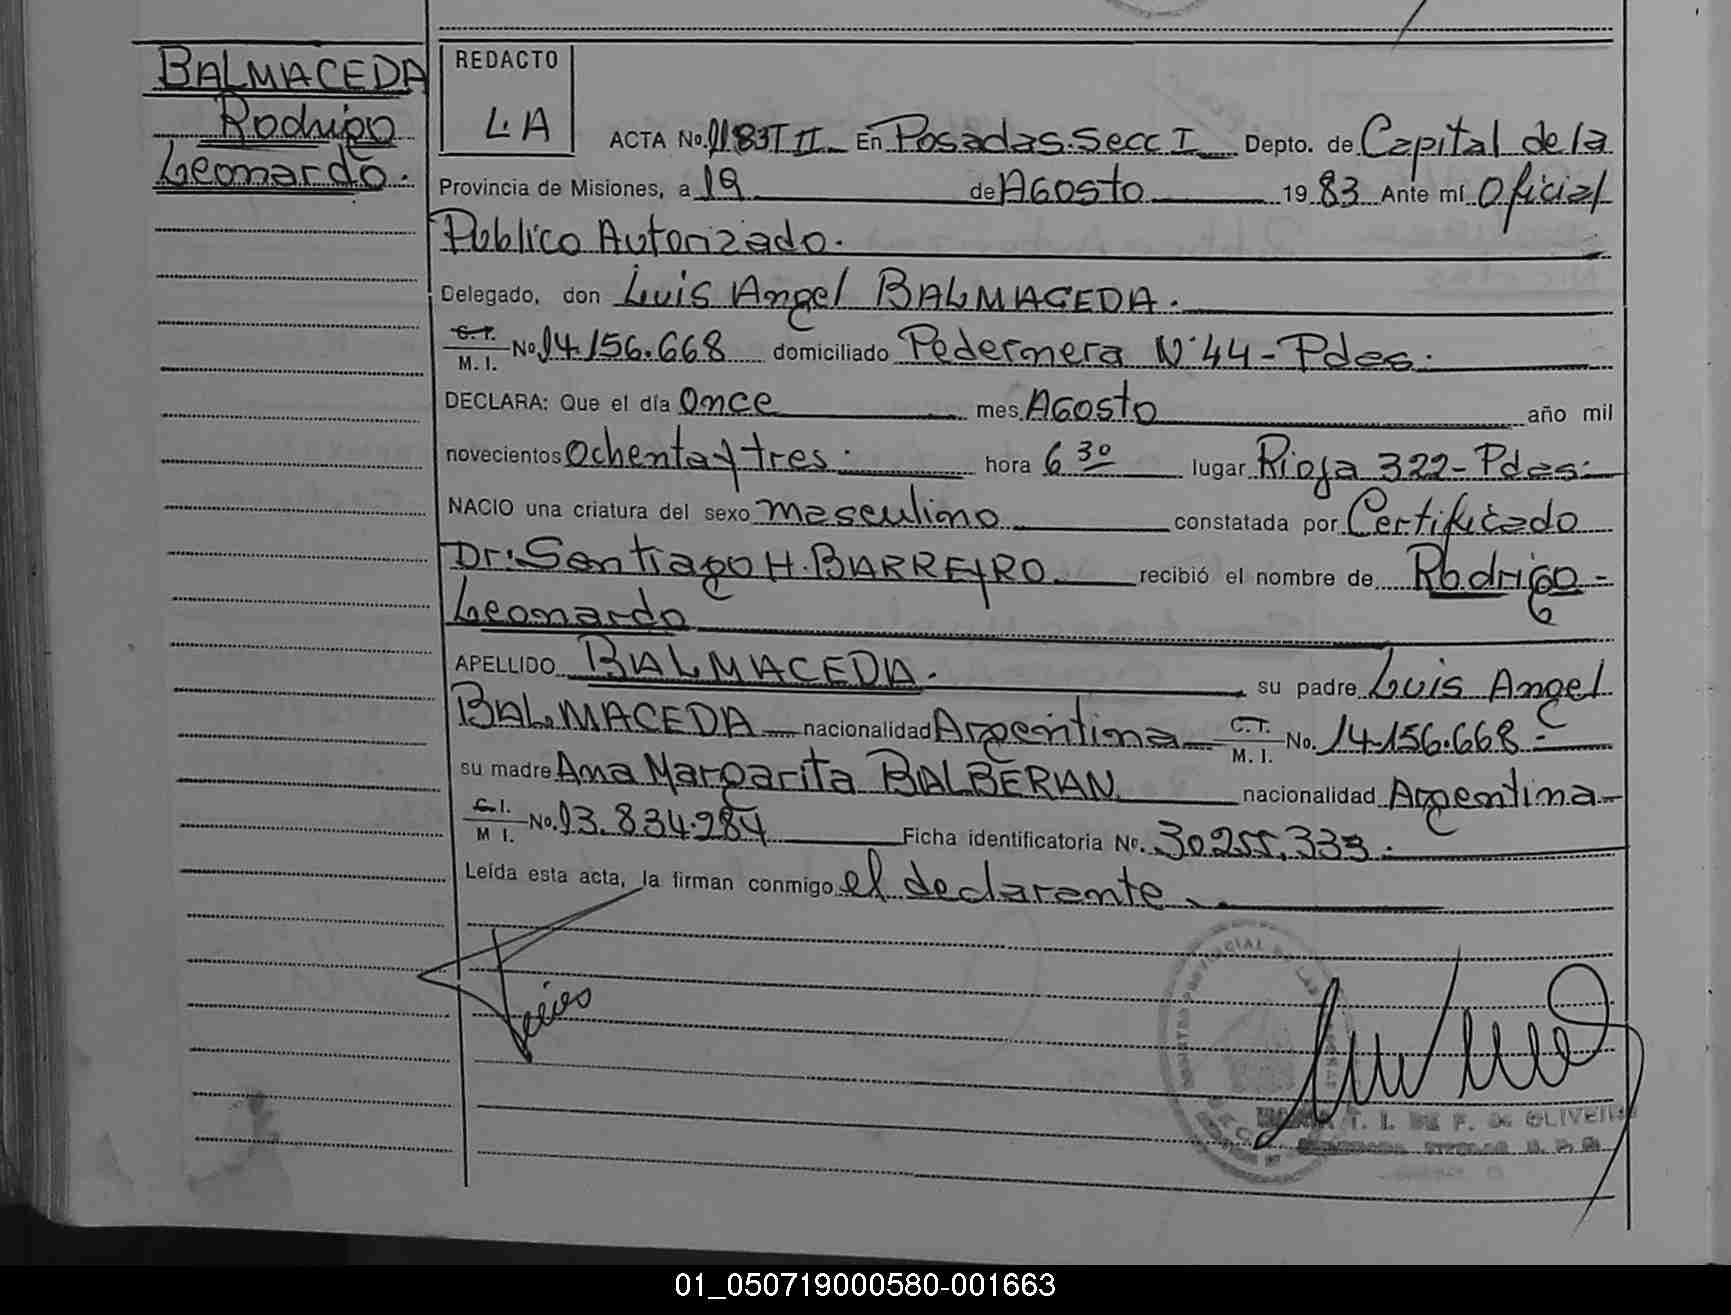 BALMACEDA
Rodrigo
Leonardo.
REDACTO
LA
ACTA No. 1183 T II En Posadas. Secc I Depto. de Capital de la
Provincia de Misiones, a 19 de AGosto 19 83 Ante mí Oficial
Publico Autorizado.
Delegado, don Luis Angel BALMACEDA.
C.I. M.I. No 14.156.668 domiciliado Pedernera N° 44 - Pdas.
DECLARA: Que el día Once mes AGosto año mil
novecientos Ochenta y tres. hora 6 30 lugar Rioja 322 - Pdas.
NACIO una criatura del sexo masculino constatada por Certificado
Dr: Santiago H. BARREYRO recibió el nombre de Rodrigo -
Leonardo
APELLIDO BALMACEDA. su padre Luis Angel
BALMACEDA nacionalidad Argentina C.I. M.I. No. 14.156.668 -
su madre Ana Margarita BALBERIAN nacionalidad Argentina
C.I. M I. No. 13.834.984 Ficha identificatoria No. 30.255.333.
Leída esta acta, la firman conmigo el declarante
T. I. DE F. DE OLIVEIRA
01_050719000580-001663